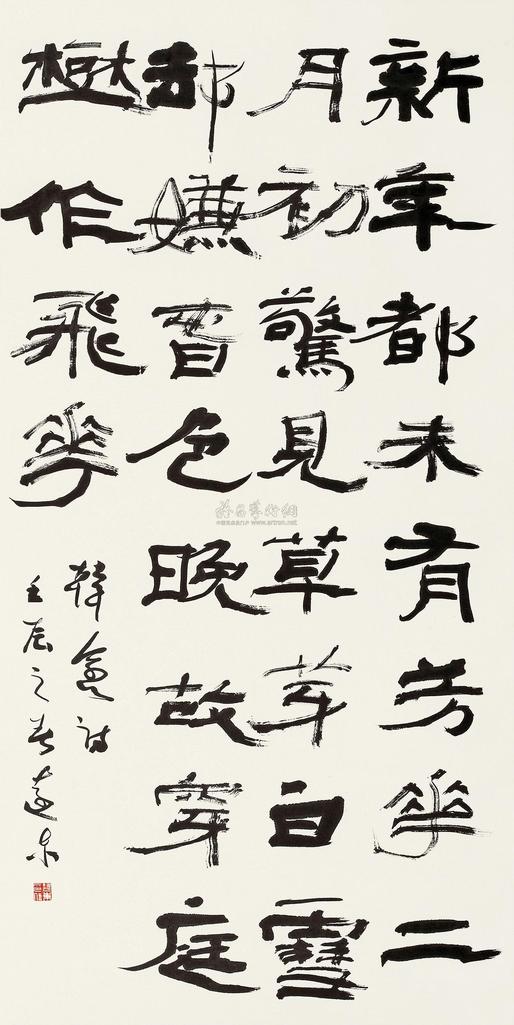 新年都未有芳華二
月初驚見草芽白雪
却嫌春色晚故穿庭
樹作飛華
韓愈詩
壬辰之春遠東
www.artron.net